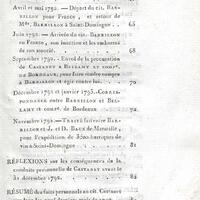 Avril et mai 1792. — Départ du cit. BAR-
BILLON pour France, et retour de
Mde. BARBILLON à Saint-Domingue. 65
Juin 1792. — Arrivée du cit. BARBILLON
en France, son inaction et les embarras
de son associé. 68
Septembre 1792. — Envoi de la procuration
de CASTANET à BELLAMY et compe.
de BORDEAUX, pour faire rendre compte
à BARBILLON et agir contre lui. 70
Décembre 1792 et janvier 1793. — CORRES-
PONDANCE entre BARBILLON et BEL-
LAMY et compe. de Bordeaux 72
Novembre 1792. — Traité
BARBILLON et J. et D. BAUX de Marseille,
pour l'expédition de 3700 barriques de
vin à Saint-Domingue 81
RÉFLEXIONS sur les conséquences de la
conduite personnelle de CASTANET avant le
31 décembre 1792. 82
RÉSUMÉ des faits personnels au cit. CASTANET